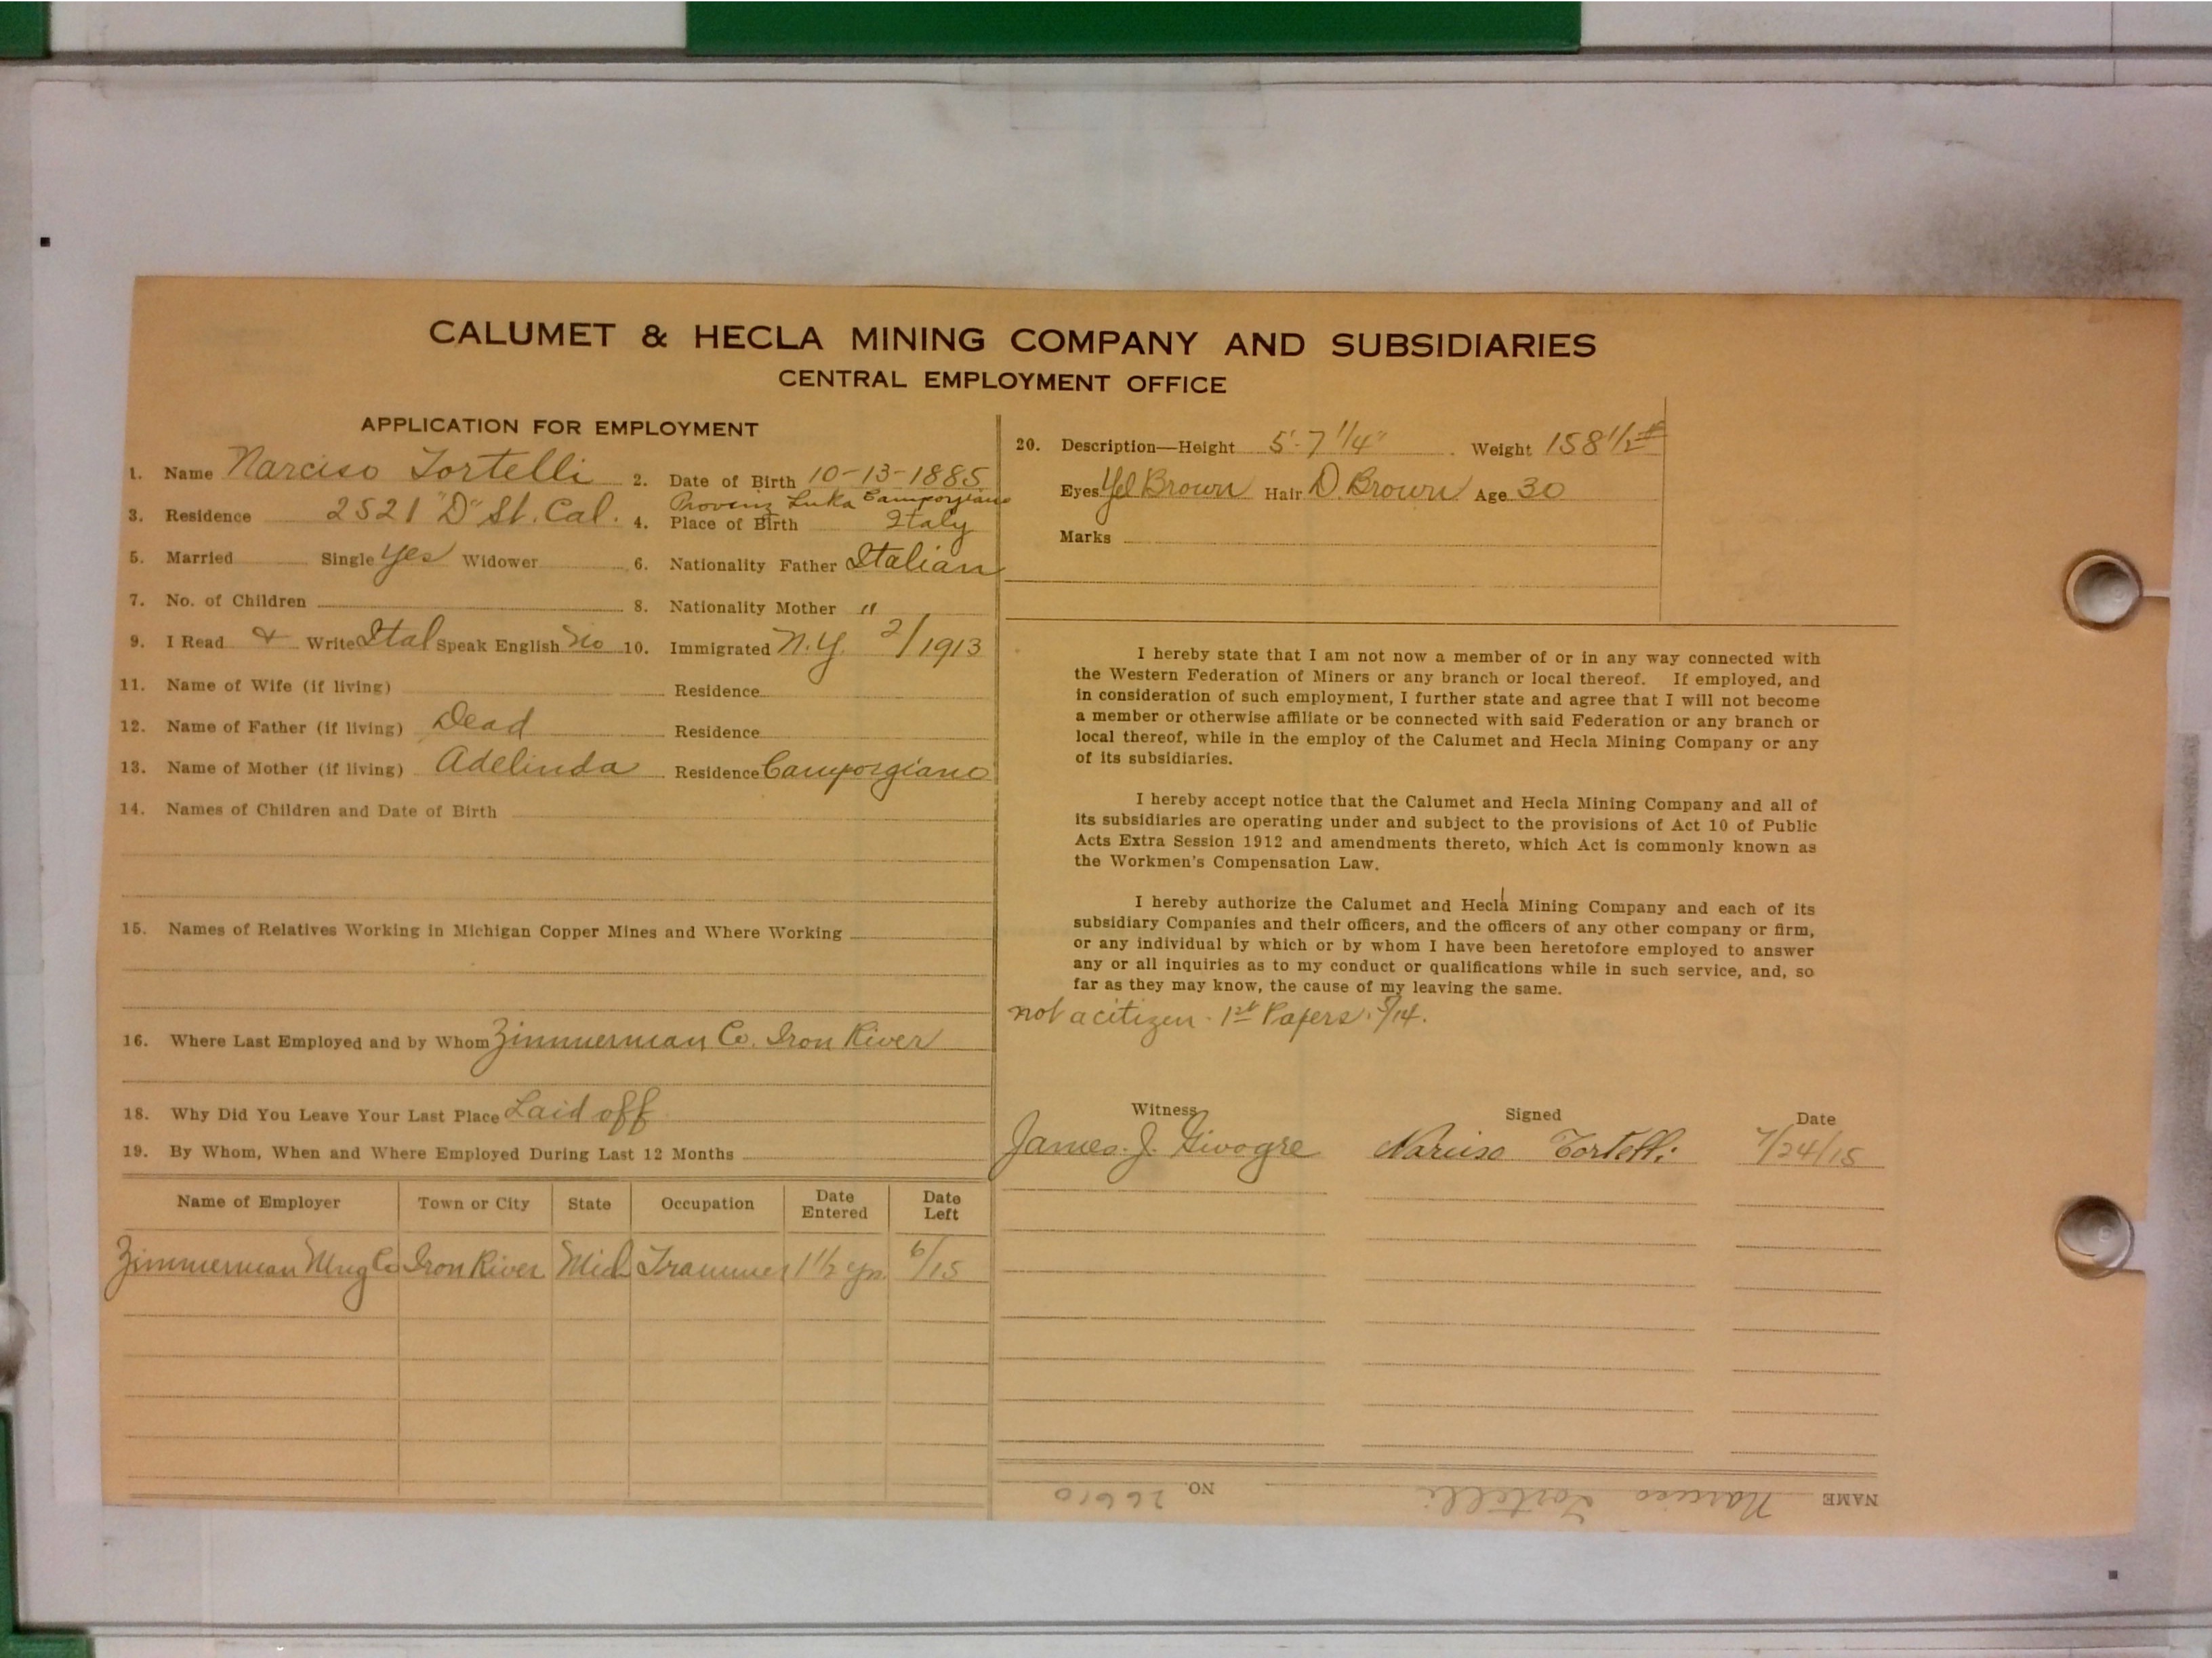 CALUMET & HECLA MINING COMPANY AND SUBSIDIARIES
CENTRAL EMPLOYMENT OFFICE
APPLICATION FOR EMPLOYMENT
1. Name Narciso Tortelli 2. Date of Birth 10-13-1885
Provinz Luka Camporgiano
3. Residence 2521 "D" St. Cal. 4. Place of Birth Italy
5. Married Single Yes Widower 6. Nationality Father Italian
7. No. of Children 8. Nationality Mother "
9. I Read & Write Ital Speak English No 10. Immigrated N.Y. 2/1913
11. Name of Wife (if living) Residence
12. Name of Father (if living) Dead Residence
13. Name of Mother (if living) Adelinda Residence Camporgiano
14. Names of Children and Date of Birth
15. Names of Relatives Working in Michigan Copper Mines and Where Working
16. Where Last Employed and by Whom Zimmerman Co. Iron River
18. Why Did You Leave Your Last Place Laid off
19. By Whom, When and Where Employed During Last 12 Months
Name of Employer Town or City State Occupation Date Entered Date Left
Zimmerman Mng Co Iron River Mich Trammer 1 1/2 yr. 6/15
20. Description—Height 5'-7 1/4" Weight 158 1/2 #
Eyes Yel Brown Hair D. Brown Age 30
Marks
I hereby state that I am not now a member of or in any way connected with
the Western Federation of Miners or any branch or local thereof. If employed, and
in consideration of such employment, I further state and agree that I will not become
a member or otherwise affiliate or be connected with said Federation or any branch or
local thereof, while in the employ of the Calumet and Hecla Mining Company or any
of its subsidiaries.
I hereby accept notice that the Calumet and Hecla Mining Company and all of
its subsidiaries are operating under and subject to the provisions of Act 10 of Public
Acts Extra Session 1912 and amendments thereto, which Act is commonly known as
the Workmen's Compensation Law.
I hereby authorize the Calumet and Hecla Mining Company and each of its
subsidiary Companies and their officers, and the officers of any other company or firm,
or any individual by which or by whom I have been heretofore employed to answer
any or all inquiries as to my conduct or qualifications while in such service, and, so
far as they may know, the cause of my leaving the same.
not a citizen - 1st Papers.
Witness Signed Date
James. J. Narciso Tortelli 7/24/15
NAME Narciso Tortelli NO. 26610